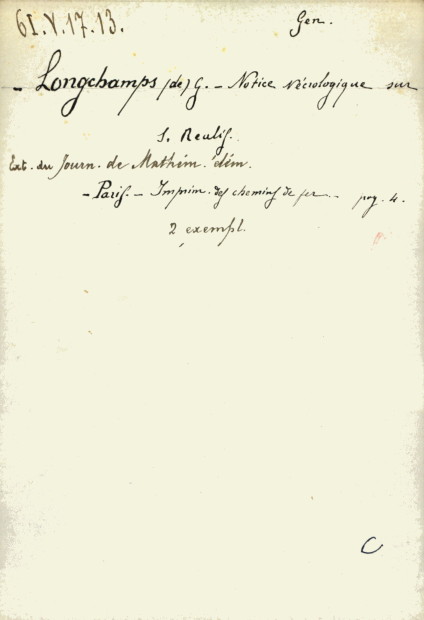 61.V.17.13.
Gen.
- Longchamps (de) G. - Notice nécrologique sur
S. Realis.
Ext. du Journ. de Mathém. élém.
- Paris. - Imprim. des chemins de fer - pag. 4.
2 exempl.
C